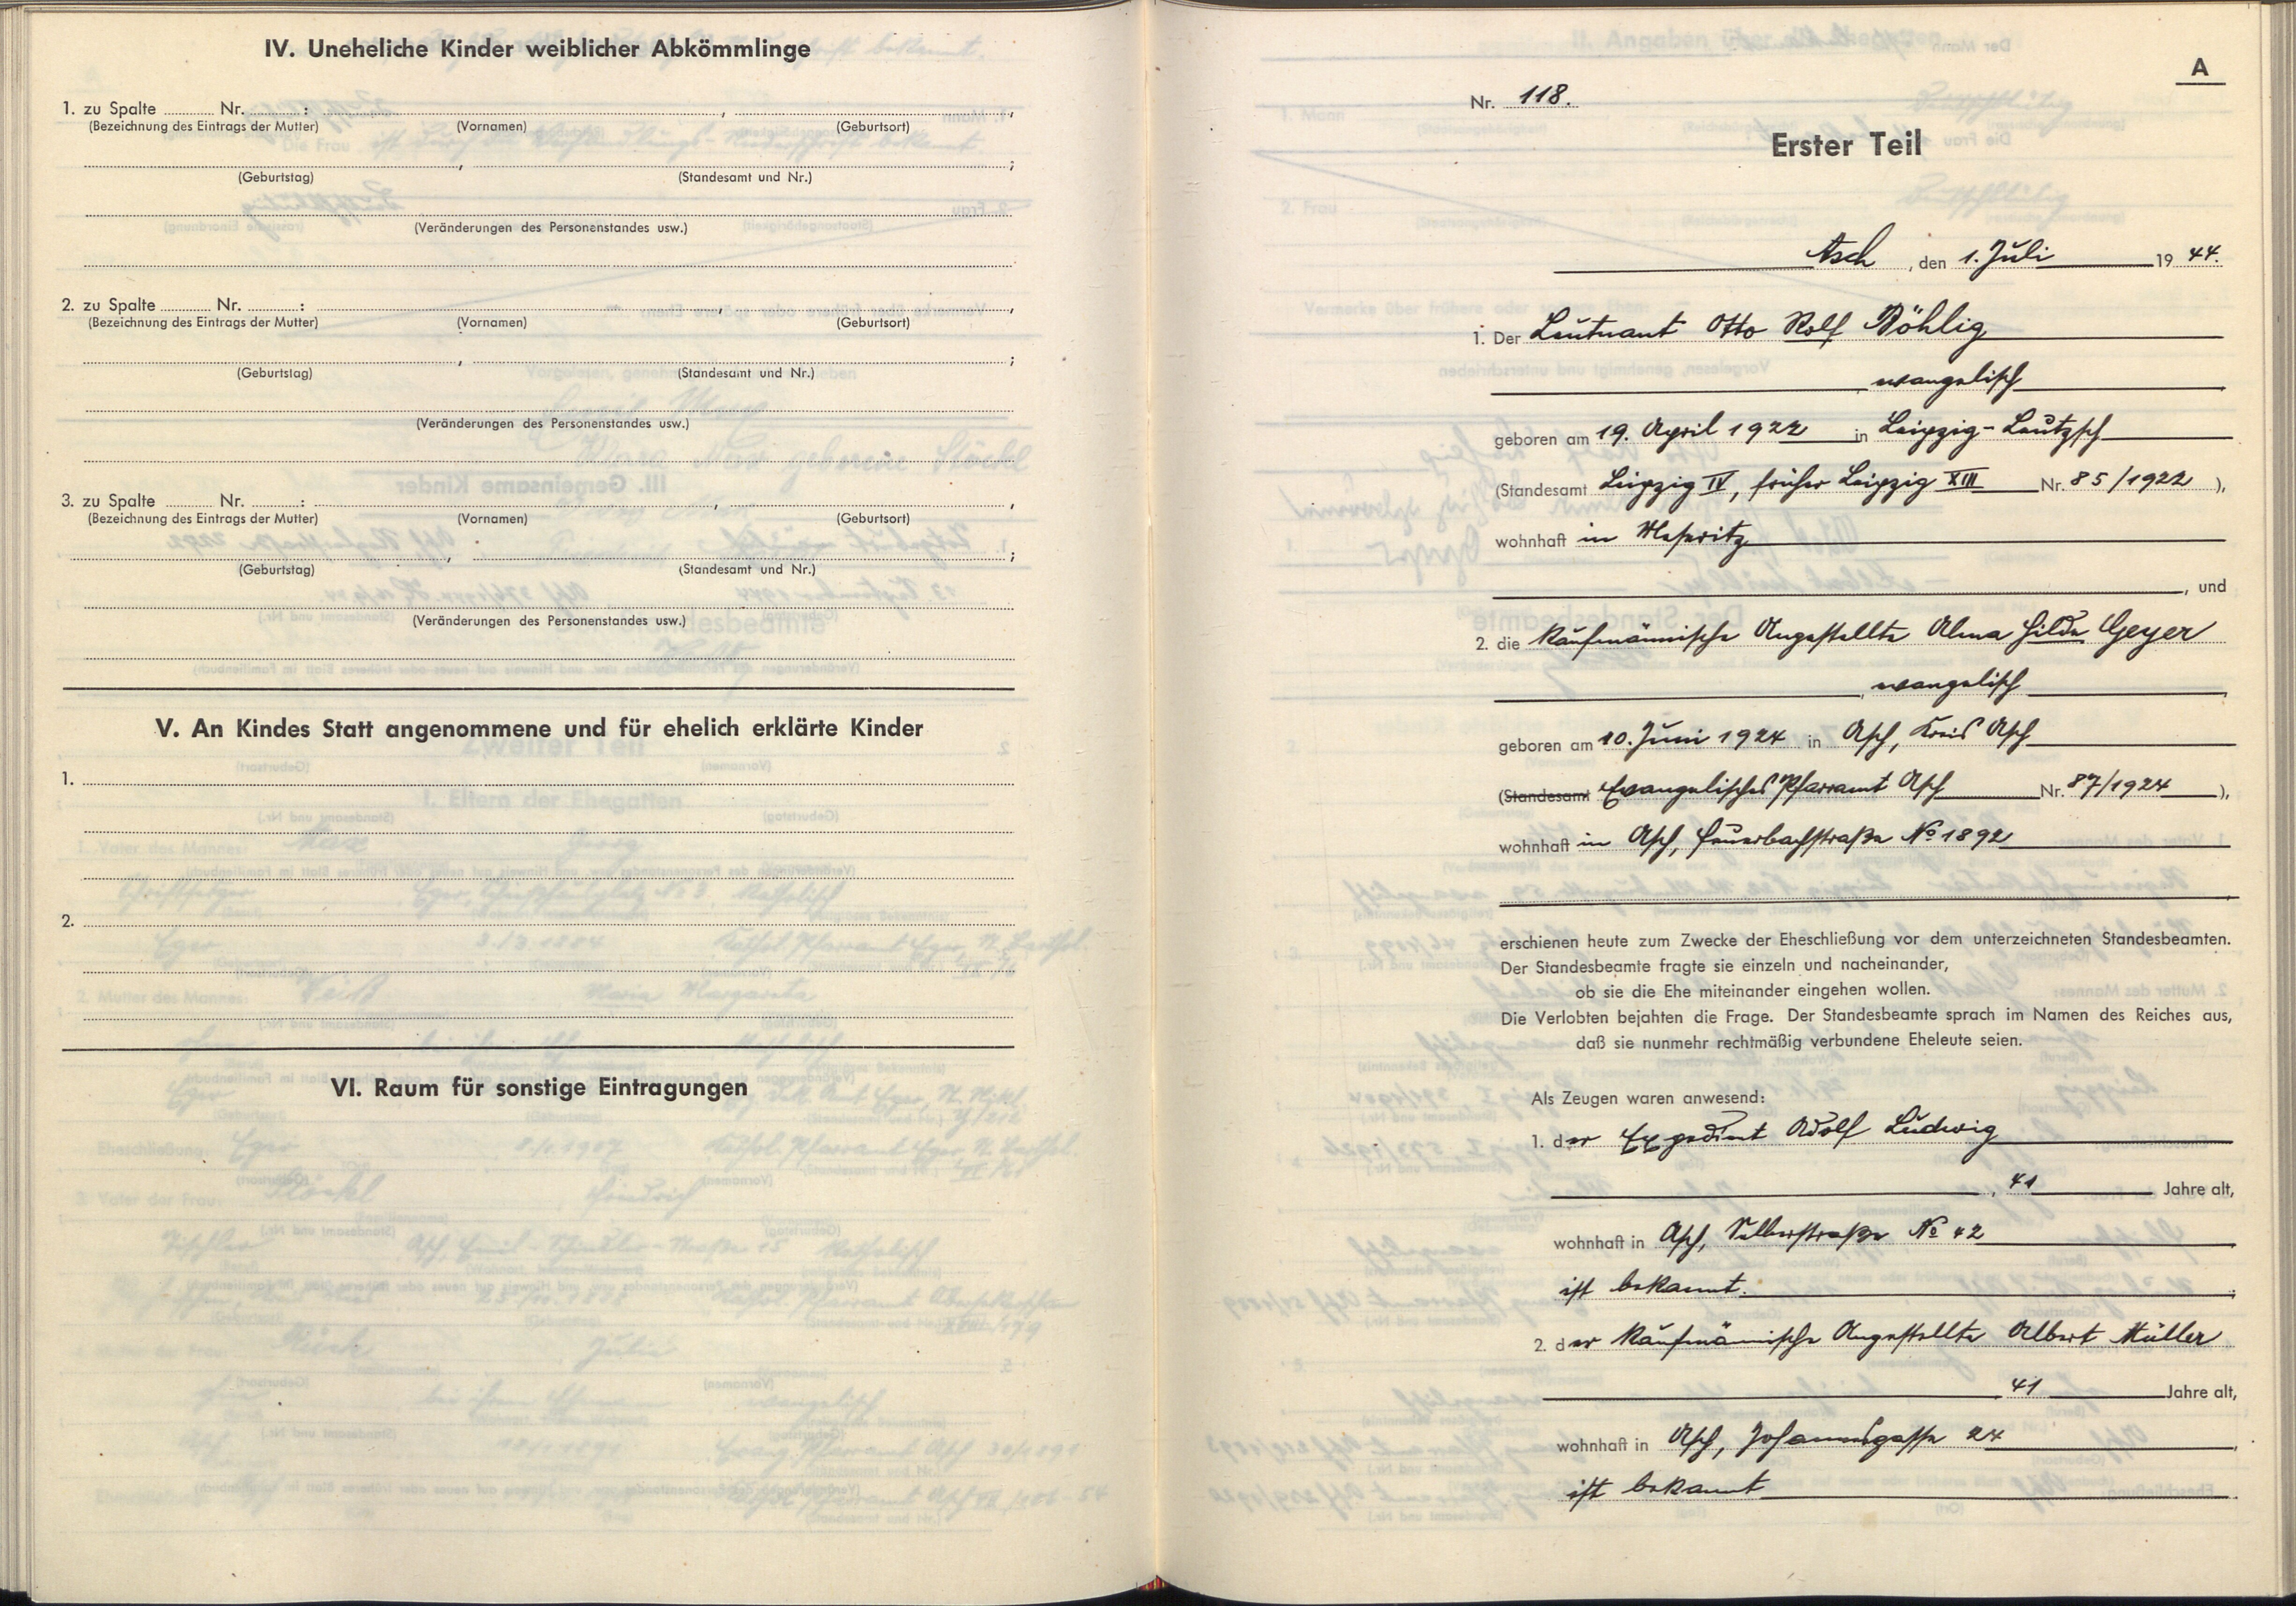 IV. Uneheliche Kinder weiblicher Abkömmlinge
1. zu Spalte ......... Nr. ............ : , ,
(Bezeichnung des Eintrags der Mutter) (Vornamen) (Geburtsort)
, ;
(Geburtstag) (Standesamt und Nr.)
(Veränderungen des Personenstandes usw.)
2. zu Spalte ......... Nr. ............ : , ,
(Bezeichnung des Eintrags der Mutter) (Vornamen) (Geburtsort)
, ;
(Geburtstag) (Standesamt und Nr.)
(Veränderungen des Personenstandes usw.)
3. zu Spalte ......... Nr. ............ : , ,
(Bezeichnung des Eintrags der Mutter) (Vornamen) (Geburtsort)
, ;
(Geburtstag) (Standesamt und Nr.)
(Veränderungen des Personenstandes usw.)
V. An Kindes Statt angenommene und für ehelich erklärte Kinder
1.
2.
VI. Raum für sonstige Eintragungen
A
Nr. 118.
Erster Teil
Asch, den 1. Juli 19 44.
1. Der Leutnant Otto Rolf Böhlig
, evangelisch
geboren am 19. April 1922 in Leipzig-Leutzsch
(Standesamt Leipzig IV, früher Leipzig XIII Nr. 85/1922),
wohnhaft in Meseritz
, und
2. die kaufmännische Angestellte Alma Hilda Geyer
, evangelisch
geboren am 10. Juni 1924 in Asch, Kreis Asch
(Standesamt Evangelisches Pfarramt Asch Nr. 87/1924),
wohnhaft in Asch, Feuerbachstraße No 1892
erschienen heute zum Zwecke der Eheschließung vor dem unterzeichneten Standesbeamten.
Der Standesbeamte fragte sie einzeln und nacheinander,
ob sie die Ehe miteinander eingehen wollen.
Die Verlobten bejahten die Frage. Der Standesbeamte sprach im Namen des Reiches aus,
daß sie nunmehr rechtmäßig verbundene Eheleute seien.
Als Zeugen waren anwesend:
1. der Expedient Adolf Ludwig
, 41 Jahre alt,
wohnhaft in Asch, Selberstraße No 42
ist bekannt. ;
2. der kaufmännische Angestellte Albert Müller
, 41 Jahre alt,
wohnhaft in Asch, Johannesgasse 24
ist bekannt